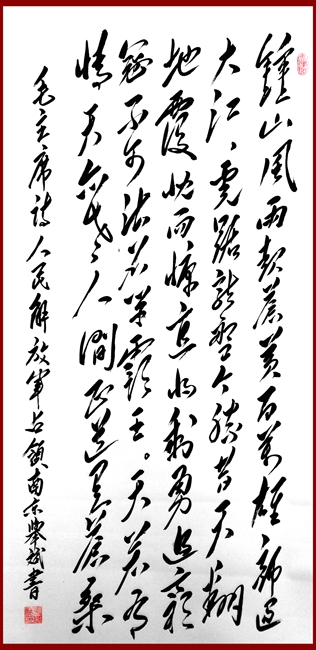 鐘山風雨起蒼黃百萬雄師過
大江虎踞龍盤今勝昔天翻
地覆慨而慷宜將剩勇追窮
寇不可沽名學霸王。天若有
情天亦老人間正道是蒼桑
毛主席詩人民解放軍占領南京舉斌書